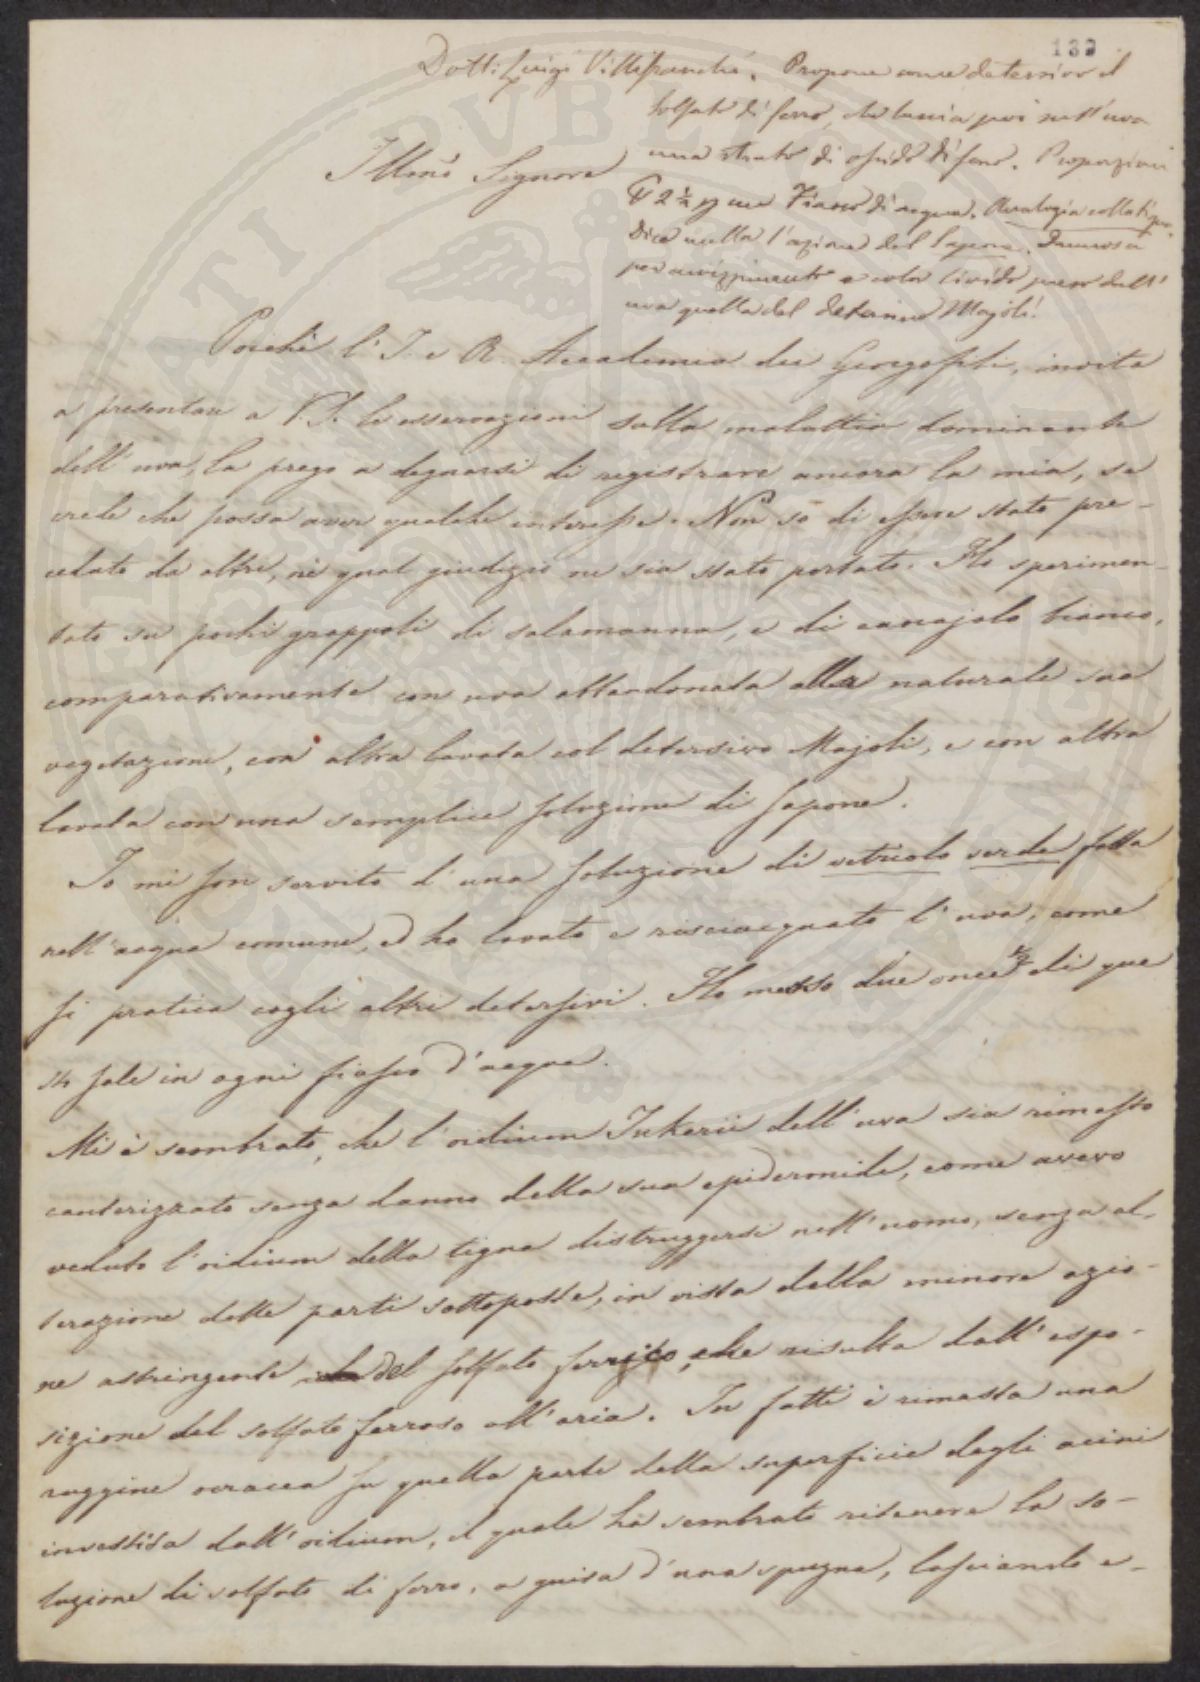 139
Dott. Luigi Villifranchi. Propone come detersivo il
solfato di ferro, che lascia poi nell'uva
uno strato di ossido di ferro. Proporzioni
℔ 2½ in un Fiasco di acqua. Analogia colla ti
Dice nulla l'azione del Sapone. Dannosa
per avvizzimento e color livido preso dall'
uva quella del detersivo Majoli.
Illmo Signore
Poichè l'I. e R. Accademia dei Georgofili, invita
a presentare a V.S. le osservazioni sulla malattia dominante
dell'uva, la prego a degnarsi di registrare ancora la mia, se
crede che possa aver qualche interesse. Non sò di essere stato pre-
cedato da altri, nè qual giudizio ne sia stato portato. Ho sperimen-
tato su pochi grappoli di salamanna, e di canajolo bianco,
comparativamente con uva abbandonata alla naturale sua
vegetazione, con altra lavata col detersivo Majoli, e con altra
lavata con una semplice soluzione di sapone.
Io mi son servito d'una soluzione di vetriolo verde fatta
nell'acqua comune, ed ho lavato e risciacquato l'uva, come
si pratica cogli altri detersivi. Ho messo due once ½ di que
sto sale in ogni fiasco d'acqua.
Mi è sembrato, che l'oidium Tukerii dell'uva sia rimasto
cauterizzato senza danno della sua epidermide, come avevo
veduto l'oidium della tigna distruggersi nell'uomo, senza al-
terazione delle parti sottoposte, in vista della minore azio-
ne astringente del solfato ferrico, che risulta dall'espo-
sizione del solfato ferroso all'aria. In fatti è rimasta una
ruggine ocracea su quella parte della superficie degli acini
investita dall'oidium, il quale ha sembrato ritenere la so-
luzione di solfato di ferro, a guisa d'una spugna, lasciando e-